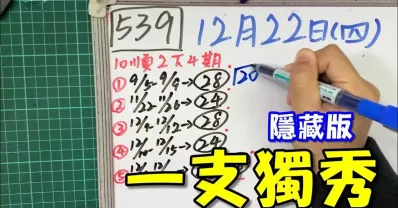 539 12月22日(四)
10順2下4期
① 9/5-9/9→28
② 11/22-11/26→24
③ 12/12→28
④ 12/10-12/15→24
⑤ 12/
隱藏版
一支獨秀